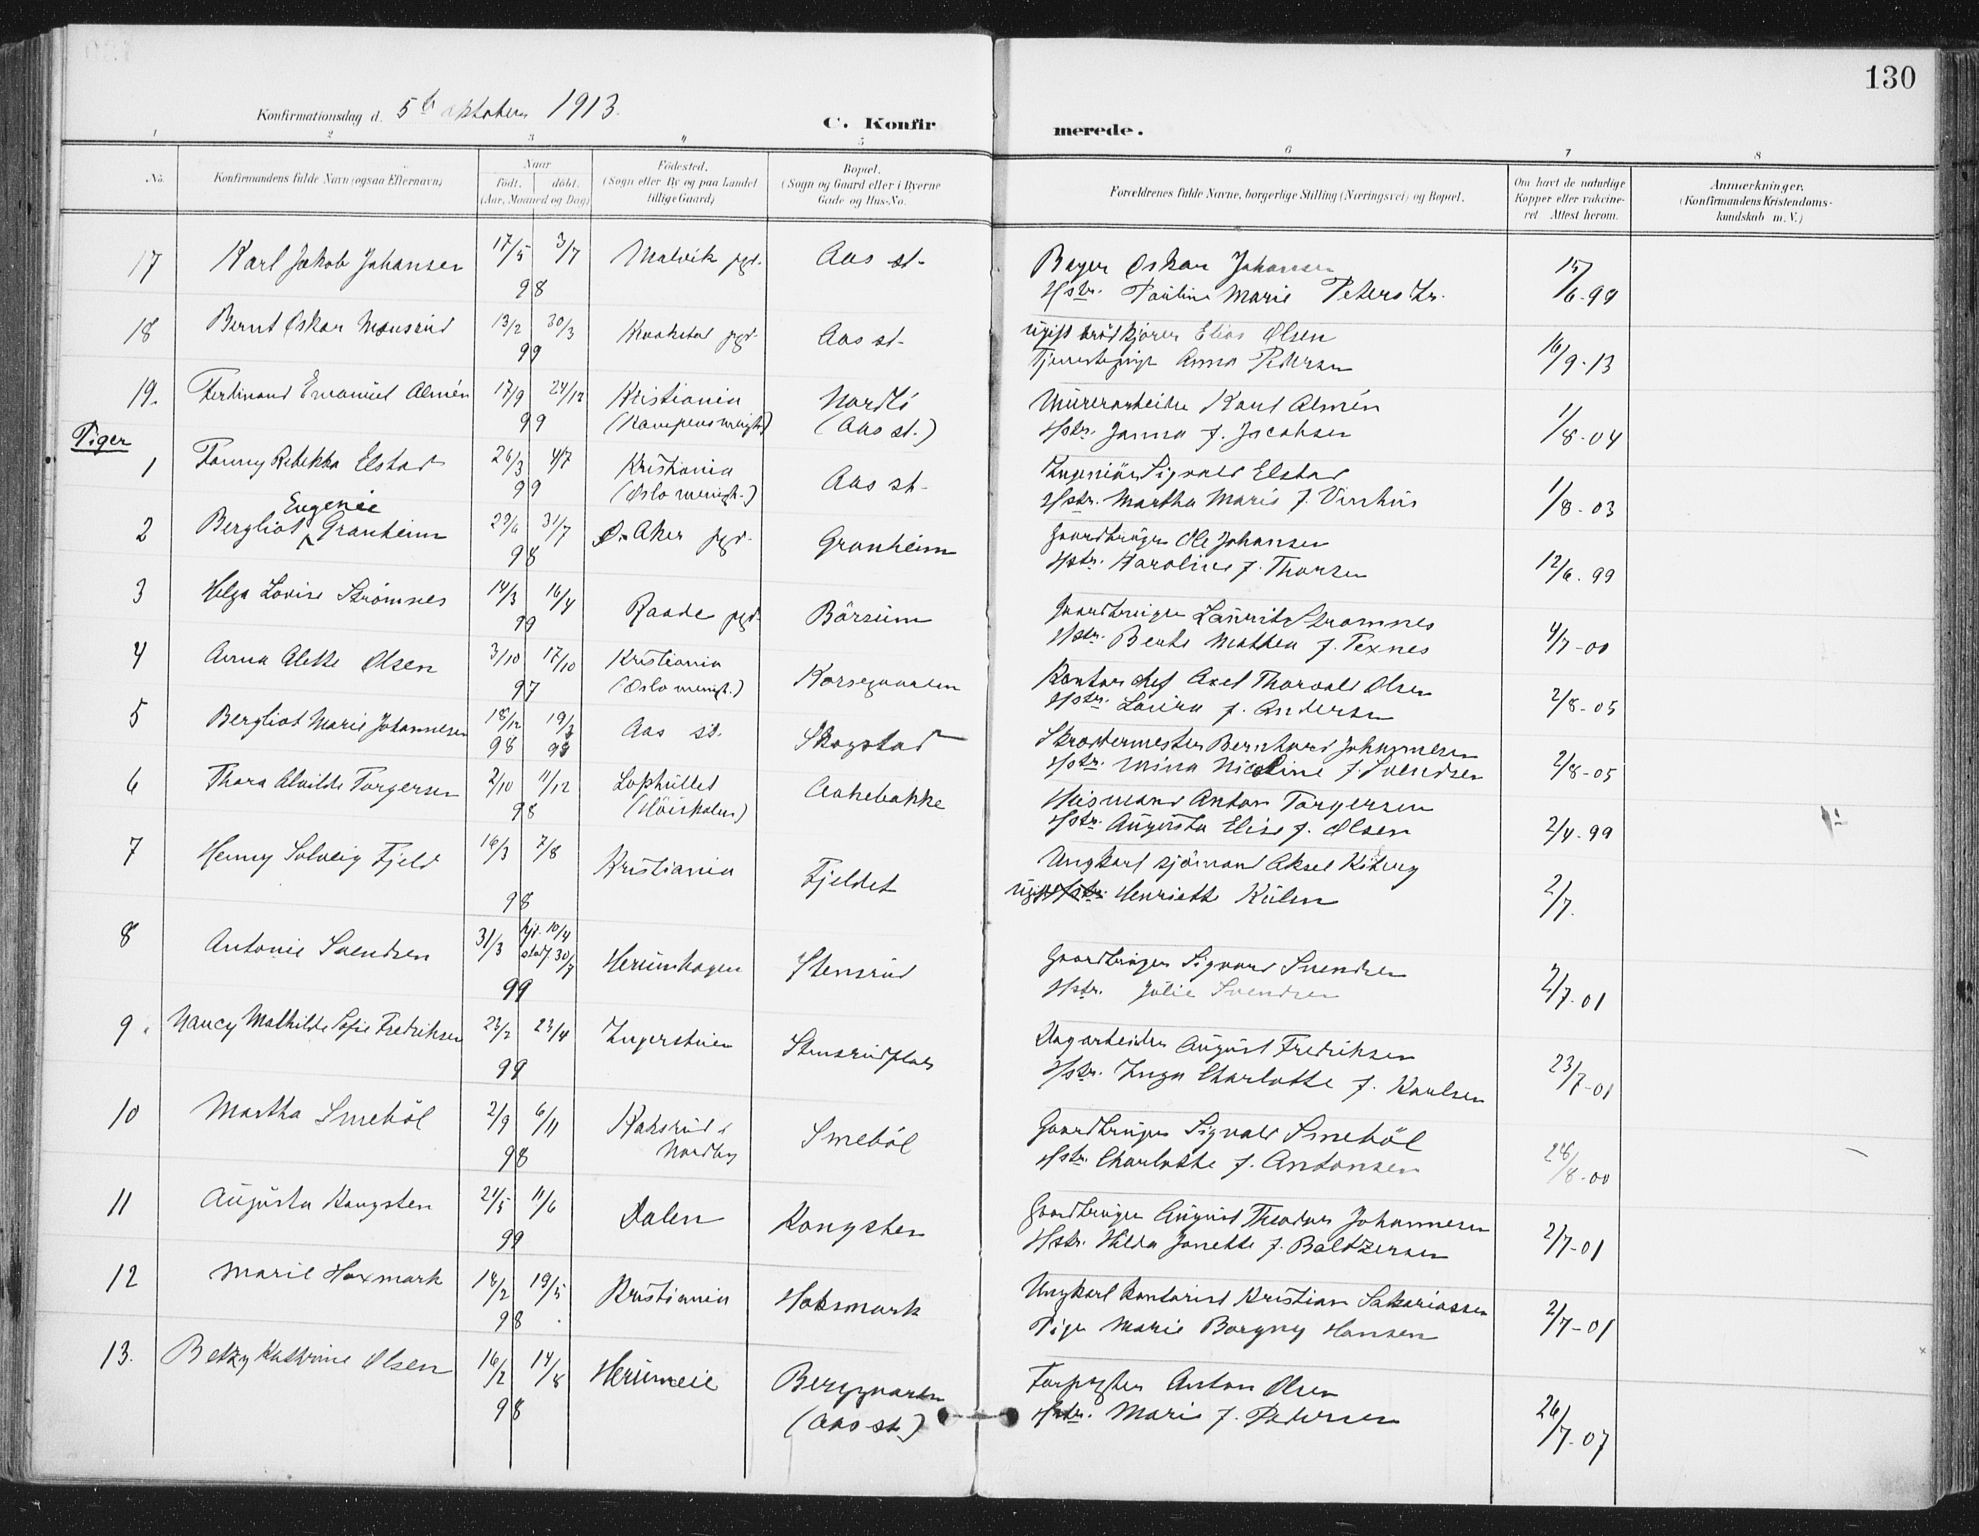 130
Konfirmationsdag d. 5te oktober 1913.
C. Konfirmerede.
1 2 3 4 5 6 7 8
No.
Konfirmandens fulde Navn (ogsaa Efternavn)
Naar
født. døbt.
(Aar, Maaned og Dag)
Fødested.
(Sogn eller By og paa Landet
tillige Gaard)
Bopæl.
(Sogn og Gaard eller i Byerne
Gade og Hus-No.
Forældrenes fulde Navne, borgerlige Stilling (Næringsvei) og Bopæl.
Om havt de naturlige
Kopper eller vakcine-
ret. Attest herom.
Anmærkninger.
(Konfirmandens Kristendoms-
kundskab m. V.)
17 Karl Jakob Johansen 17/5 3/7 98 Malvik pgd. Aas st.
Bager Oskar Johansen
Hstr. Pauline Marie Petersdr. 15/6-99
18 Bernt Oskar Mansrud 13/2 30/3 99 Kraakstad pgd. Aas st.
ugift brødkjører Elias Olsen
Tjenestepige Anna Pedersen 16/9-13
19. Ferdinand Emanuel Almén 17/9 24/12 99 Kristiania
(Kampens menigh.) Nordli
(Aas st.)
Murerarbeider Karl Almén
Hstr. Janna f. Jacobsen 1/8-04
Piger
1 Fanny Rebekka Elstad 26/3 4/7 99 Kristiania
(Oslo menigh.) Aas st.
Ingeniør Sigvald Elstad
Hstr. Martha Marie f. Vinhus 1/8-03
2 Bergliot Eugenie Granheim 29/6 31/7 98 Ø. Aker pgd. Granheim
Gaardbruger Ole Johansen
Hstr. Karoline f. Thorsen 12/6-99
3 Helga Lovise Strømnes 14/3 16/4 99 Raade pgd. Børsum
Gaardbruger Laurits Strømnes
Hstr. Beate Mathea f. Texnes 4/7-00
4 Anna Alette Olsen 3/10 17/10 97 Kristiania
(Oslo menigh.) Korsegaarden
Kontorchef Axel Thorvald Olsen
Hstr. Laura f. Andersen 2/8-05
5 Bergliot Marie Johannesen 18/12 98 19/3 Aas st. Skogstad
Skræddermester Bernhard Johannesen
Hstr. Mina Nicoline f. Svendsen 2/8-05
6 Thora Alvilde Torgersen 2/10 11/12 98 Lophullet
(Høiskolen) Aakebakke
Husmand Anton Torgersen
Hstr. Augusta Elise f. Olsen 2/4-99
7 Henny Solveig Fjeld 16/3 7/8 98 Kristiania Fjeldet
Ungkarl sjømand Aksel Kiberg
ugift Henriette Kulen 2/7.
8 Antonie Svendsen 31/3 hjd. 10/4 stadf. 30/7 99 Herumhagen Stensrud
Gaardbruger Sigvard Svendsen
Hstr. Julie Svendsen 2/7-01
9. Nancy Mathilde Sofie Fredriksen 23/2 23/4 99 Ingerstuen Stensrudplads
Dagarbeider August Fredriksen
Hstr. Inga Charlotte f. Karlsen 23/7-01
10 Martha Smebøl 2/9 6/11 98 Kaksrud i
Nordby Smebøl
Gaardbruger Sigvald Smebøl
Hstr. Charlotte f. Antonsen 28/8-00
11 Augusta Kongsten 24/5 11/6 99 Dalen Kongsten
Gaardbruger August Theodor Johannesen
Hstr. Hilda Janette f. Baltzersen 2/7-01
12 Marie Hoxmark 18/2 19/5 98 Kristiania Hoksmark
Ungkarl kontorist Kristian Sakariassen
Pige Marie Borgny Hansen 2/7-01
13. Betzy Kathrine Olsen 16/2 14/8 98 Herumeie Berggaarden
(Aas st.)
Forpagter Anton Olsen
Hstr. Marie f. Pedersen 26/7-07